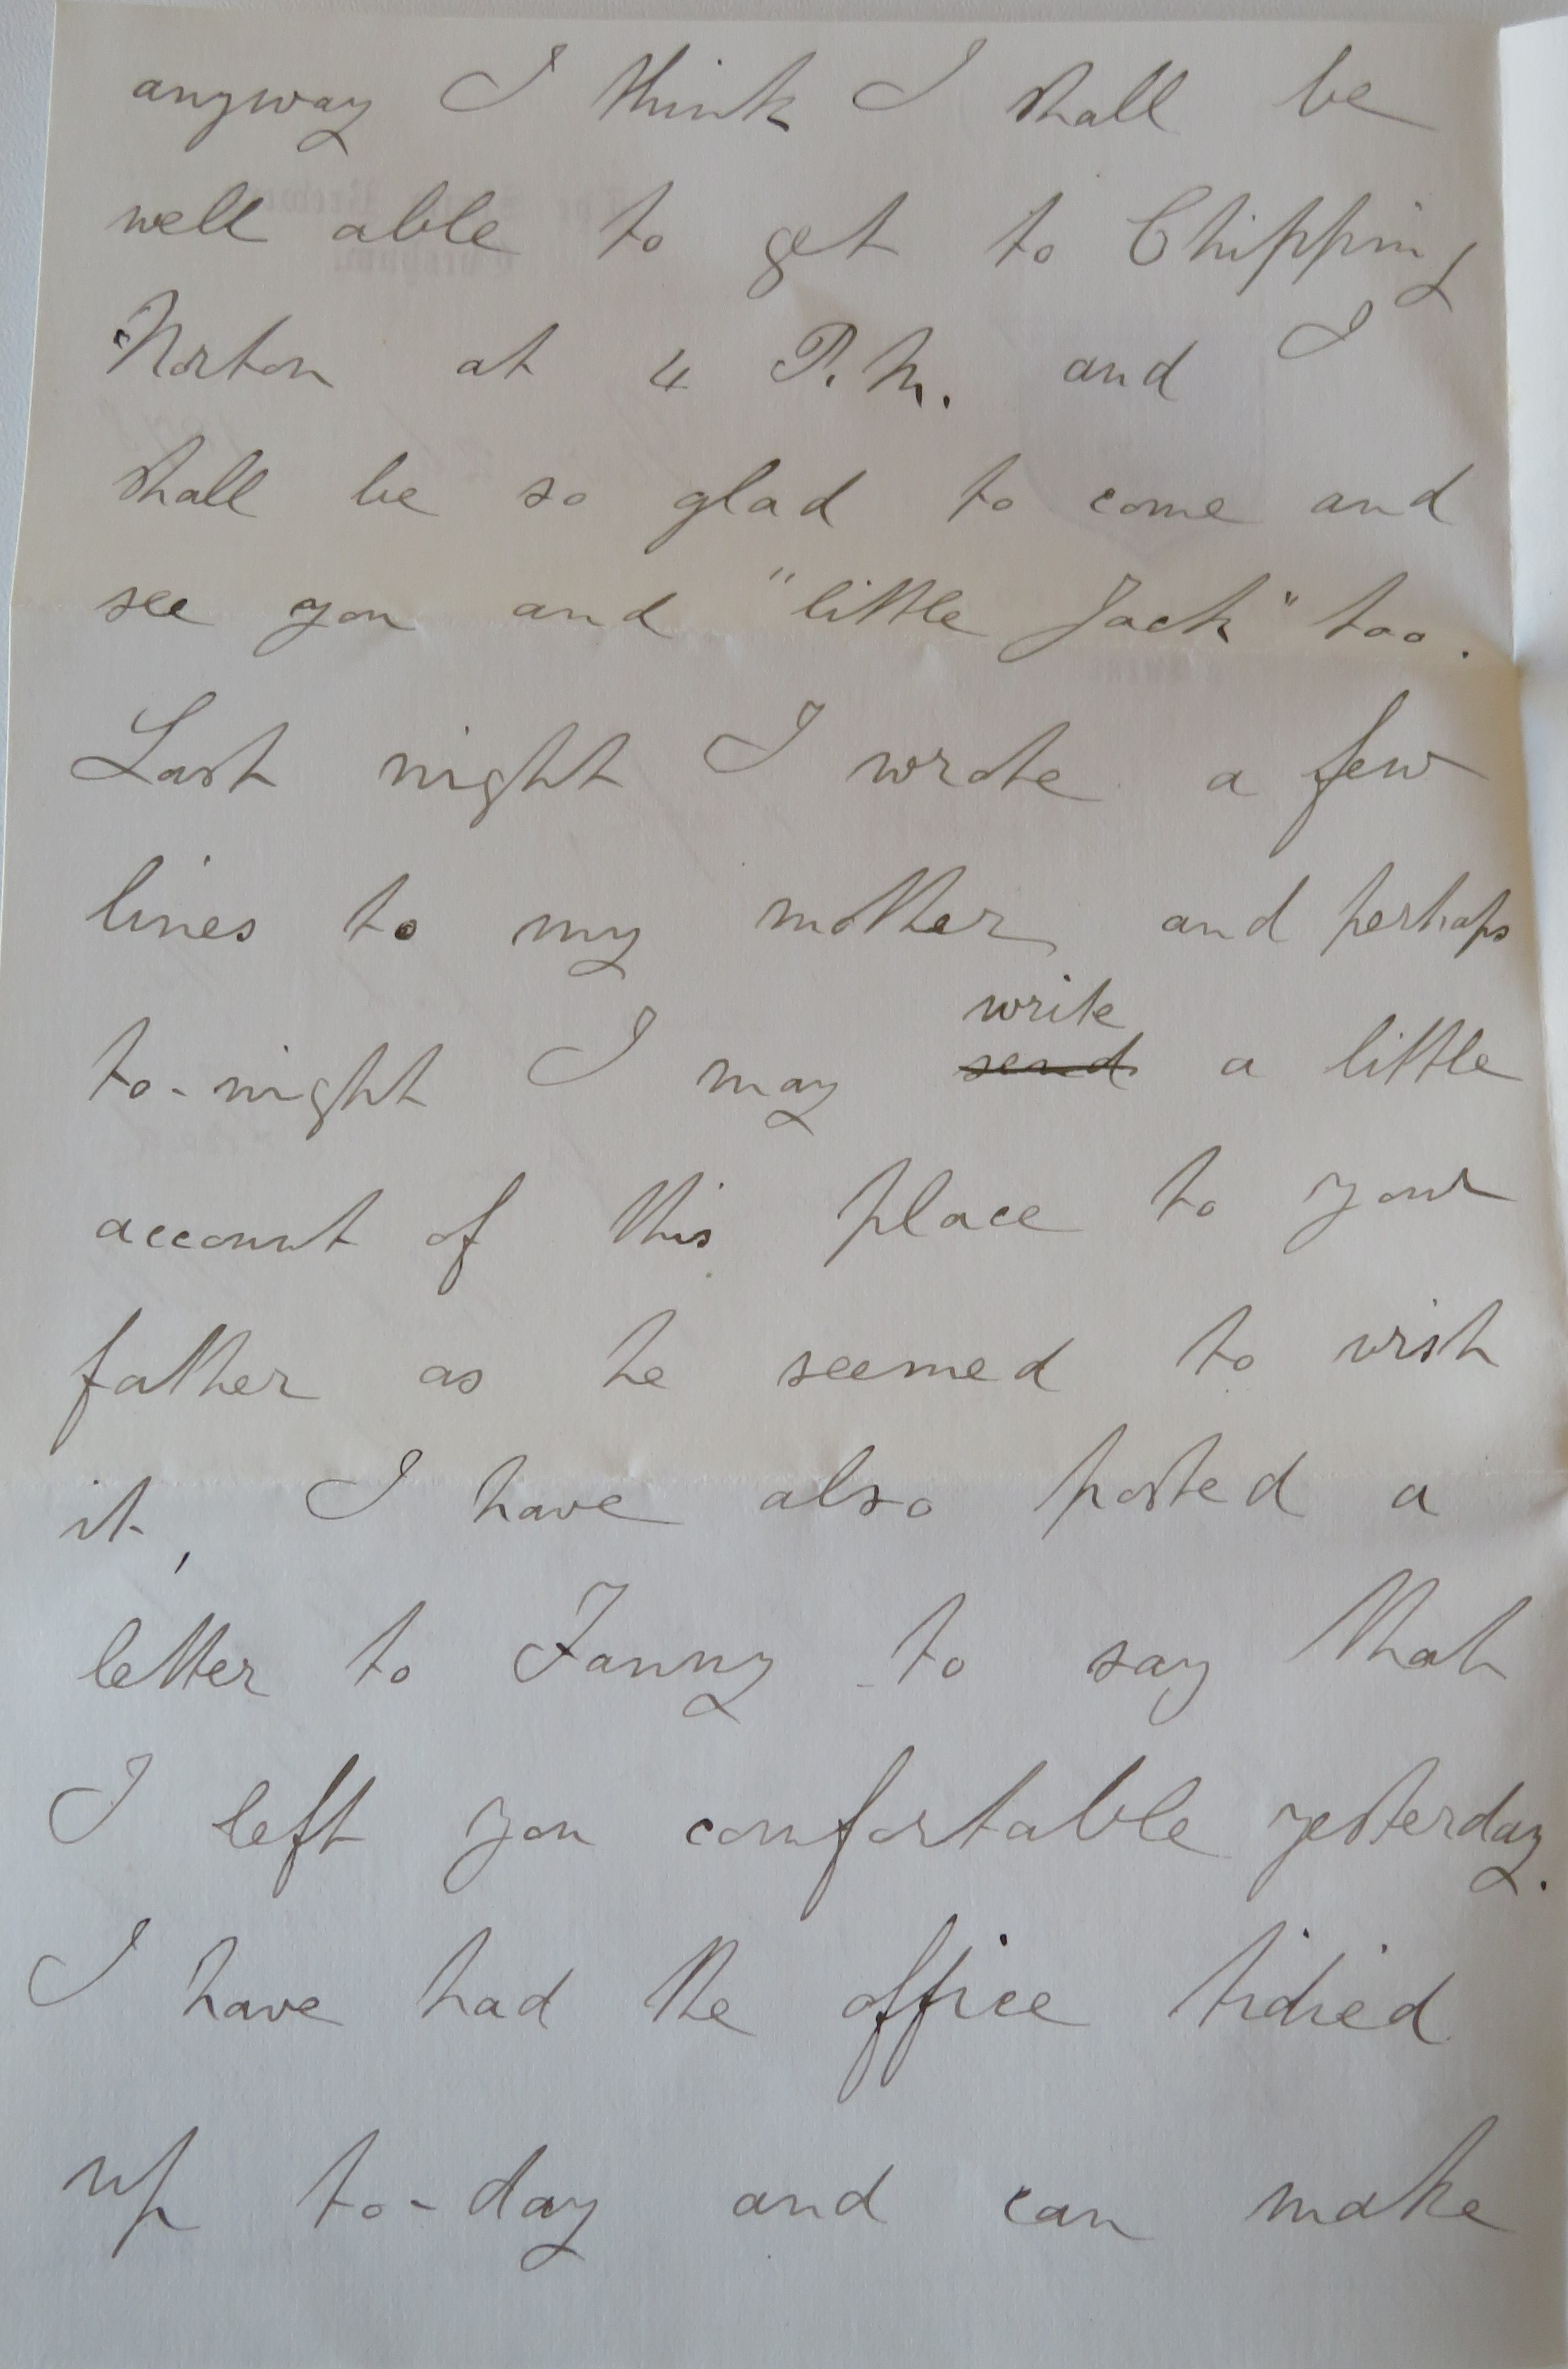 anyway I think I shall be
well able to get to Chipping
Norton at 4 P.M. and I
shall be so glad to come and
see you and "little Jack" too.
Last night I wrote a few
lines to my mother and perhaps
write
to-night I may send a little
account of this place to your
father as he seemed to wish
it, I have also posted a
letter to Fanny to say that
I left you comfortable yesterday.
I have had the office tidied
up to-day and can make